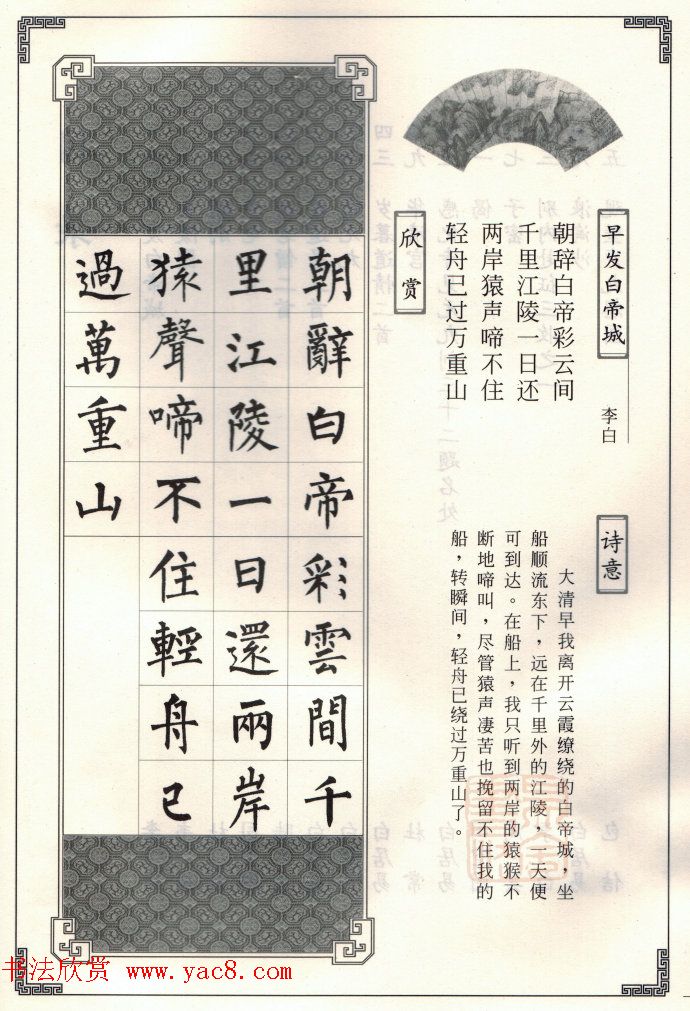 早发白帝城
李白
朝辞白帝彩云间
千里江陵一日还
两岸猿声啼不住
轻舟已过万重山
诗意
大清早我离开云霞缭绕的白帝城，坐
船顺流东下，远在千里外的江陵，一天便
可到达。在船上，我只听到两岸的猿猴不
断地啼叫，尽管猿声凄苦也挽留不住我的
船，转瞬间，轻舟已绕过万重山了。
欣赏
朝辭白帝彩雲間千
里江陵一日還兩岸
猿聲啼不住輕舟已
過萬重山
书法欣赏 www.yac8.com